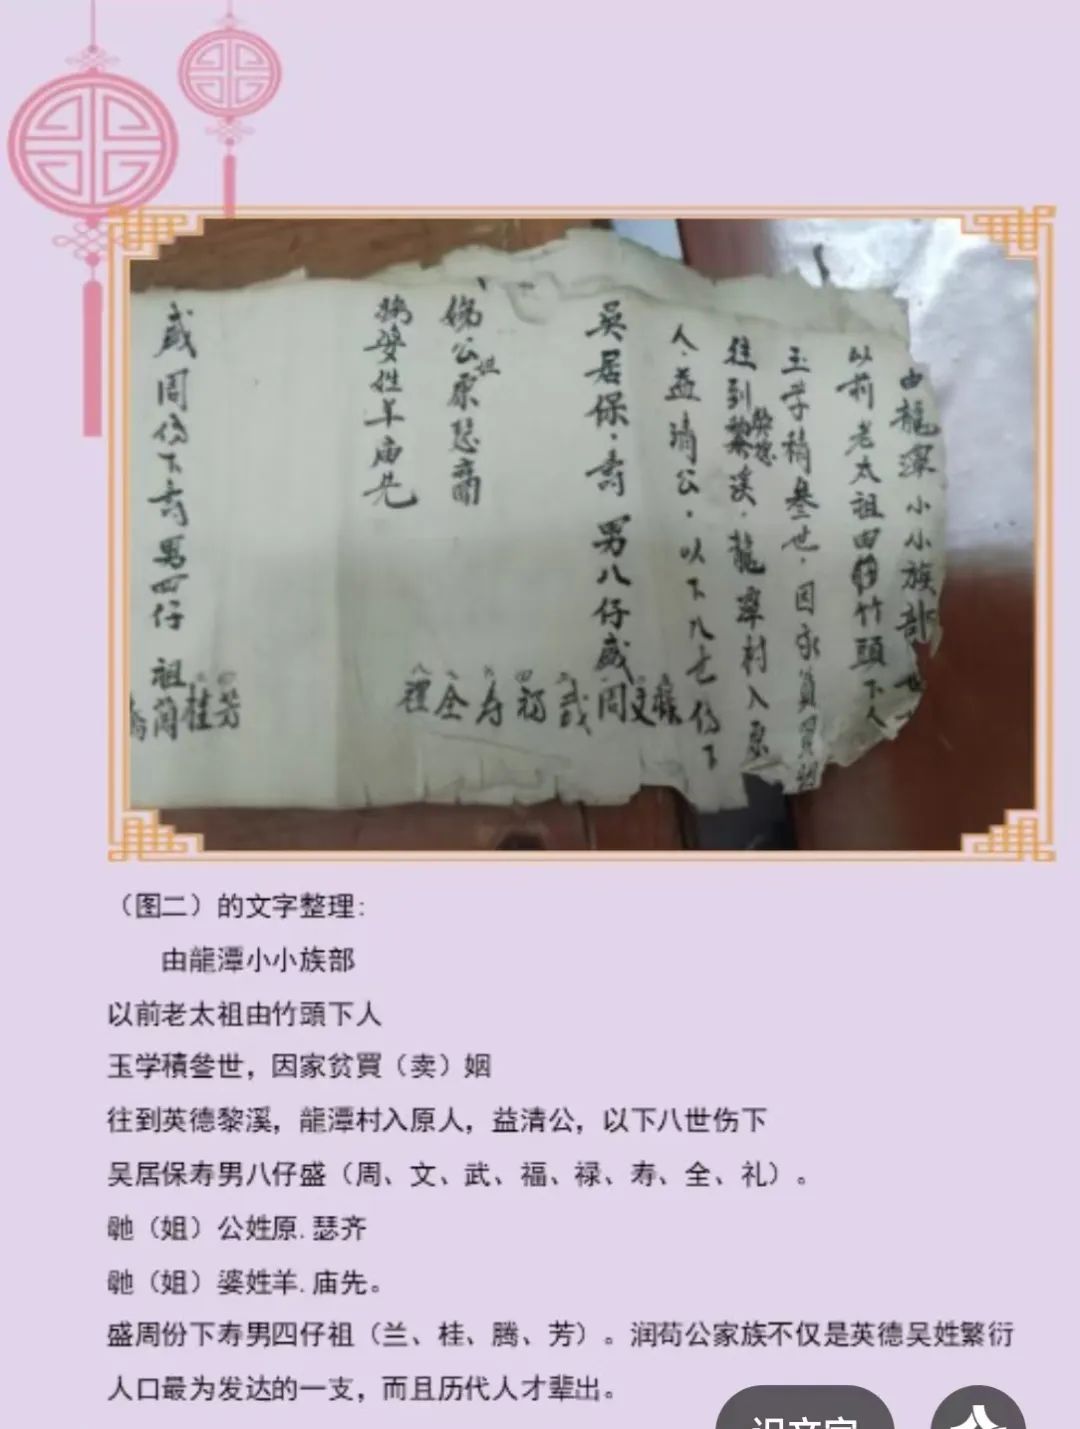 由龍潭小小族部
以前老太祖由竹頭下人
玉学積叁世,因家貧買
往到英德黎溪,龍潭村入原
人,益清公,以下八世份下
吳居保,寿 男八仔盛
周文武福寿全禮
公姓原
婆姓羊庙先
盛周份下寿男四仔 祖
蘭桂芳
(图二)的文字整理:
由龍潭小小族部
以前老太祖由竹頭下人
玉学積叁世,因家贫買(卖)姻
往到英德黎溪,龍潭村入原人,益清公,以下八世伤下
吴居保寿男八仔盛(周、文、武、福、禄、寿、全、礼)。
毑(姐)公姓原.瑟齐
毑(姐)婆姓羊.庙先。
盛周份下寿男四仔祖(兰、桂、腾、芳)。润苟公家族不仅是英德吴姓繁衍
人口最为发达的一支,而且历代人才辈出。
识文字